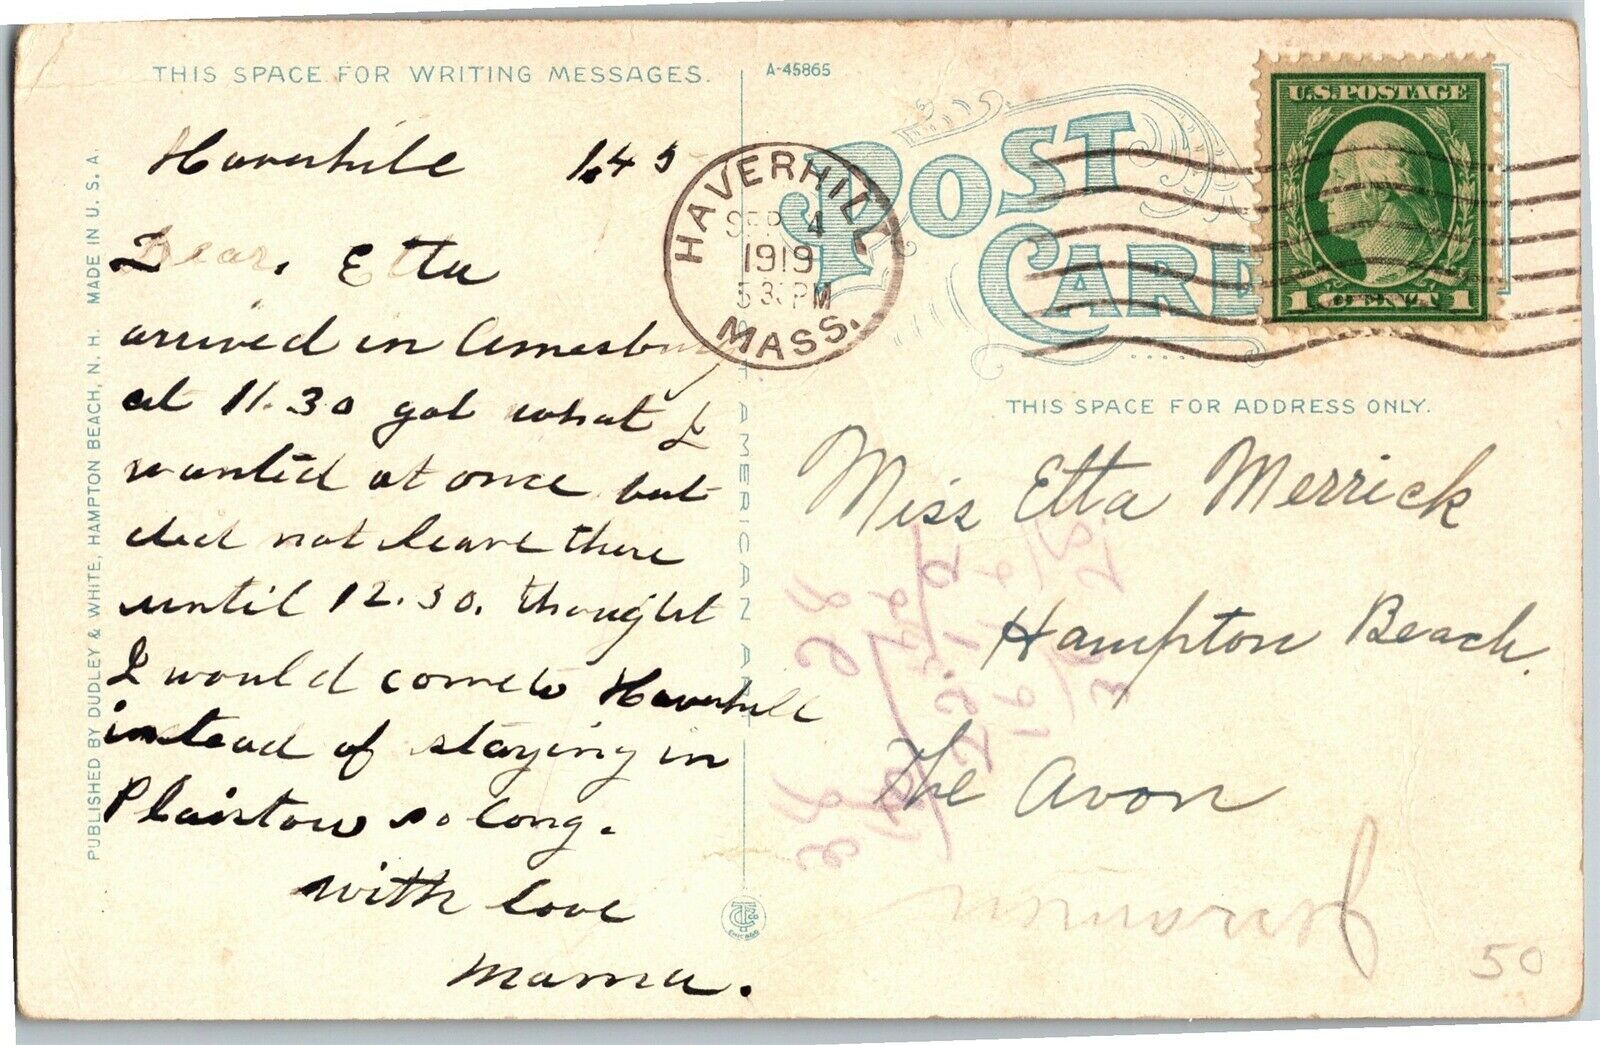 THIS SPACE FOR WRITING MESSAGES.
A-45865
POST CARD
U.S. POSTAGE
1 CENT 1
HAVERHILL
SEP 4
1919
5 30 PM
MASS.
Haverhill 1.45
Dear, Etta
arrived in Amesbury
at 11.30 got what I
wanted at once but
did not leave there
until 12.30. thought
I would come to Haverhill
instead of staying in
Plaistow so long.
with love
Mama.
THIS SPACE FOR ADDRESS ONLY.
Miss Etta Merrick
Hampton Beach.
The Avon
50
PUBLISHED BY DUDLEY & WHITE, HAMPTON BEACH, N. H. MADE IN U. S. A.
AMERICAN ART
CHICAGO